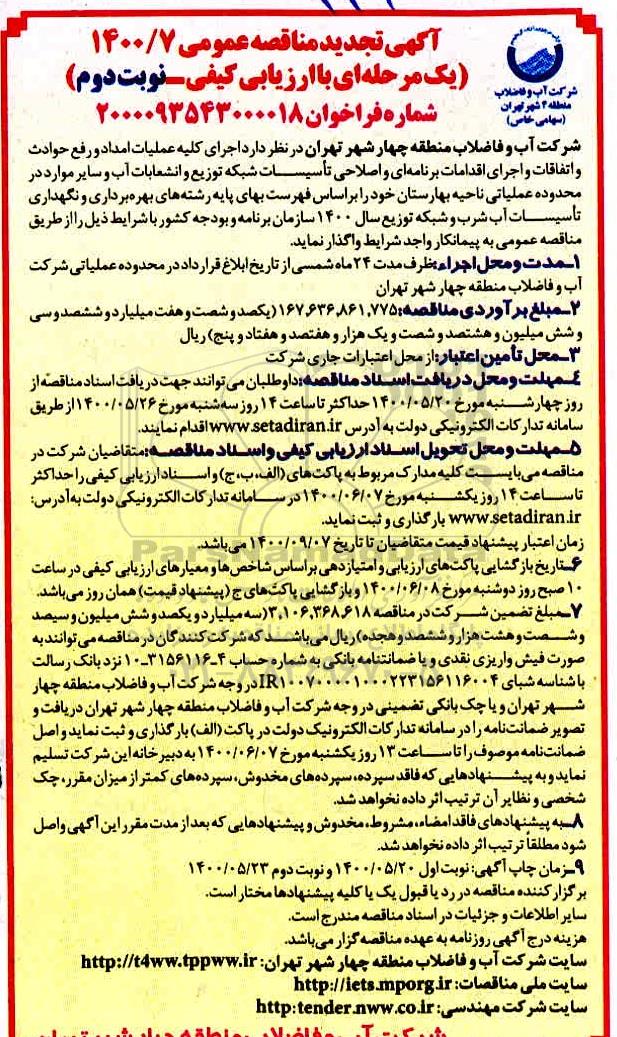 آگهی تجدید مناقصه عمومی ۱۴۰۰/۷
(یک مرحله‌ای با ارزیابی کیفی ـ نوبت دوم)
شماره فراخوان ۲۰۰۰۰۹۳۵۴۳۰۰۰۰۱۸
شرکت آب و فاضلاب
منطقه ۴ شهر تهران
(سهامی خاص)
شرکت آب و فاضلاب منطقه چهار شهر تهران در نظر دارد اجرای کلیه عملیات امداد و رفع حوادث
و اتفاقات و اجرای اقدامات برنامه‌ای و اصلاحی تأسیسات شبکه توزیع و انشعابات آب و سایر موارد در
محدوده عملیاتی ناحیه بهارستان خود را براساس فهرست بهای پایه رشته‌های بهره‌برداری و نگهداری
تأسیسات آب شرب و شبکه توزیع سال ۱۴۰۰ سازمان برنامه و بودجه کشور با شرایط ذیل را از طریق
مناقصه عمومی به پیمانکار واجد شرایط واگذار نماید.
۱ـ مدت و محل اجراء: ظرف مدت ۲۴ ماه شمسی از تاریخ ابلاغ قرارداد در محدوده عملیاتی شرکت
آب و فاضلاب منطقه چهار شهر تهران
۲ـ مبلغ برآوردی مناقصه: ۱۶۷,۶۳۶,۸۶۱,۷۷۵ (یکصد و شصت و هفت میلیارد و ششصد و سی
و شش میلیون و هشتصد و شصت و یک هزار و هفتصد و هفتاد و پنج) ریال
۳ـ محل تأمین اعتبار: از محل اعتبارات جاری شرکت
۴ـ مهلت و محل دریافت اسناد مناقصه: داوطلبان می‌توانند جهت دریافت اسناد مناقصه از
روز چهارشنبه مورخ ۱۴۰۰/۰۵/۲۰ حداکثر تا ساعت ۱۴ روز سه‌شنبه مورخ ۱۴۰۰/۰۵/۲۶ از طریق
سامانه تدارکات الکترونیکی دولت به آدرس www.setadiran.ir اقدام نمایند.
۵ـ مهلت و محل تحویل اسناد ارزیابی کیفی و اسناد مناقصه: متقاضیان شرکت در
مناقصه می‌بایست کلیه مدارک مربوط به پاکت‌های (الف، ب، ج) و اسناد ارزیابی کیفی را حداکثر
تا ساعت ۱۴ روز یکشنبه مورخ ۱۴۰۰/۰۶/۰۷ در سامانه تدارکات الکترونیکی دولت به آدرس:
www.setadiran.ir بارگذاری و ثبت نماید.
زمان اعتبار پیشنهاد قیمت متقاضیان تا تاریخ ۱۴۰۰/۰۹/۰۷ می‌باشد.
۶ـ تاریخ بازگشایی پاکت‌های ارزیابی و امتیازدهی براساس شاخص‌ها و معیارهای ارزیابی کیفی در ساعت
۱۰ صبح روز دوشنبه مورخ ۱۴۰۰/۰۶/۰۸ و بازگشایی پاکت‌های ج (پیشنهاد قیمت) همان روز می‌باشد.
۷ـ مبلغ تضمین شرکت در مناقصه ۳,۱۰۶,۳۶۸,۶۱۸ (سه میلیارد و یکصد و شش میلیون و سیصد
و شصت و هشت هزار و ششصد و هجده) ریال می‌باشد که شرکت کنندگان در مناقصه می‌توانند به
صورت فیش واریزی نقدی و یا ضمانتنامه بانکی به شماره حساب ۴ـ۳۱۵۶۱۱۶ـ۱۰ نزد بانک رسالت
با شناسه شبای IR۱۰۰۷۰۰۰۰۱۰۰۰۲۲۳۱۵۶۱۱۶۰۰۴ در وجه شرکت آب و فاضلاب منطقه چهار
شهر تهران و یا چک بانکی تضمینی در وجه شرکت آب و فاضلاب منطقه چهار شهر تهران دریافت و
تصویر ضمانت‌نامه را در سامانه تدارکات الکترونیک دولت در پاکت (الف) بارگذاری و ثبت نماید و اصل
ضمانت‌نامه موصوف را تا ساعت ۱۳ روز یکشنبه مورخ ۱۴۰۰/۰۶/۰۷ به دبیرخانه این شرکت تسلیم
نماید و به پیشنهادهایی که فاقد سپرده، سپرده‌های مخدوش، سپرده‌های کمتر از میزان مقرر، چک
شخصی و نظایر آن ترتیب اثر داده نخواهد شد.
۸ـ به پیشنهادهای فاقد امضاء، مشروط، مخدوش و پیشنهادهایی که بعد از مدت مقرر این آگهی واصل
شود مطلقاً ترتیب اثر داده نخواهد شد.
۹ـ زمان چاپ آگهی: نوبت اول ۱۴۰۰/۰۵/۲۰ و نوبت دوم ۱۴۰۰/۰۵/۲۳
برگزار کننده مناقصه در رد یا قبول یک یا کلیه پیشنهادها مختار است.
سایر اطلاعات و جزئیات در اسناد مناقصه مندرج است.
هزینه درج آگهی روزنامه به عهده مناقصه‌گزار می‌باشد.
سایت شرکت آب و فاضلاب منطقه چهار شهر تهران: http://t4ww.tppww.ir
سایت ملی مناقصات: http://iets.mporg.ir
سایت شرکت مهندسی: http:tender.nww.co.ir
شرکت آب و فاضلاب منطقه چهار شهر تهران